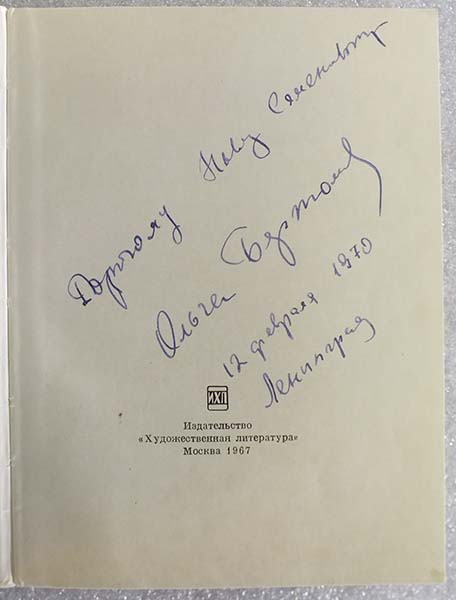 Дорогому Семеновичу
Ольга Берггольц
12 февраля 1970
Ленинград
ИХЛ
Издательство
«Художественная литература»
Москва 1967